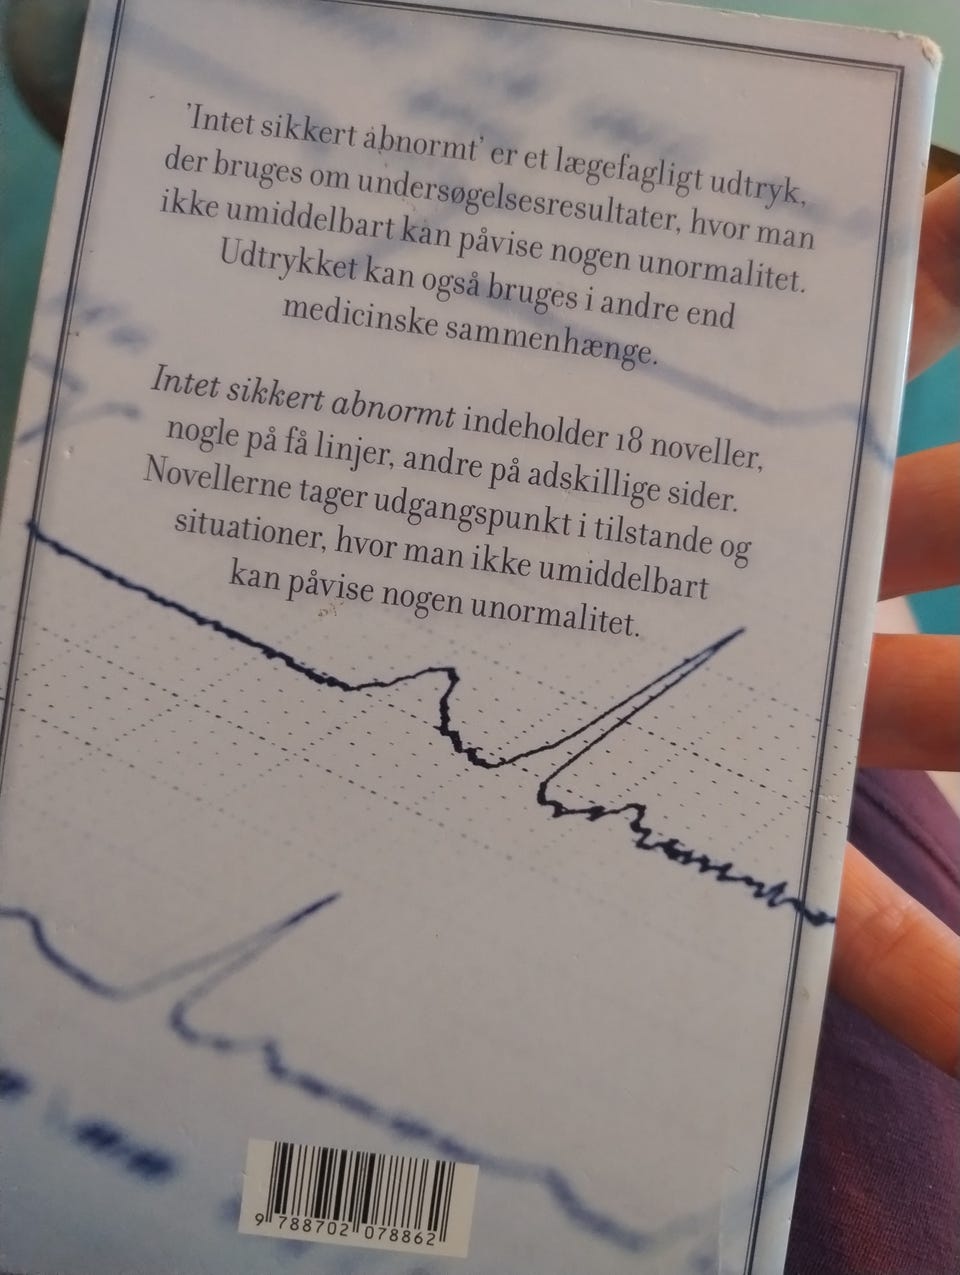 'Intet sikkert abnormt' er et lægefagligt udtryk,
der bruges om undersøgelsesresultater, hvor man
ikke umiddelbart kan påvise nogen unormalitet.
Udtrykket kan også bruges i andre end
medicinske sammenhænge.
Intet sikkert abnormt indeholder 18 noveller,
nogle på få linjer, andre på adskillige sider.
Novellerne tager udgangspunkt i tilstande og
situationer, hvor man ikke umiddelbart
kan påvise nogen unormalitet.
9 788702 078862